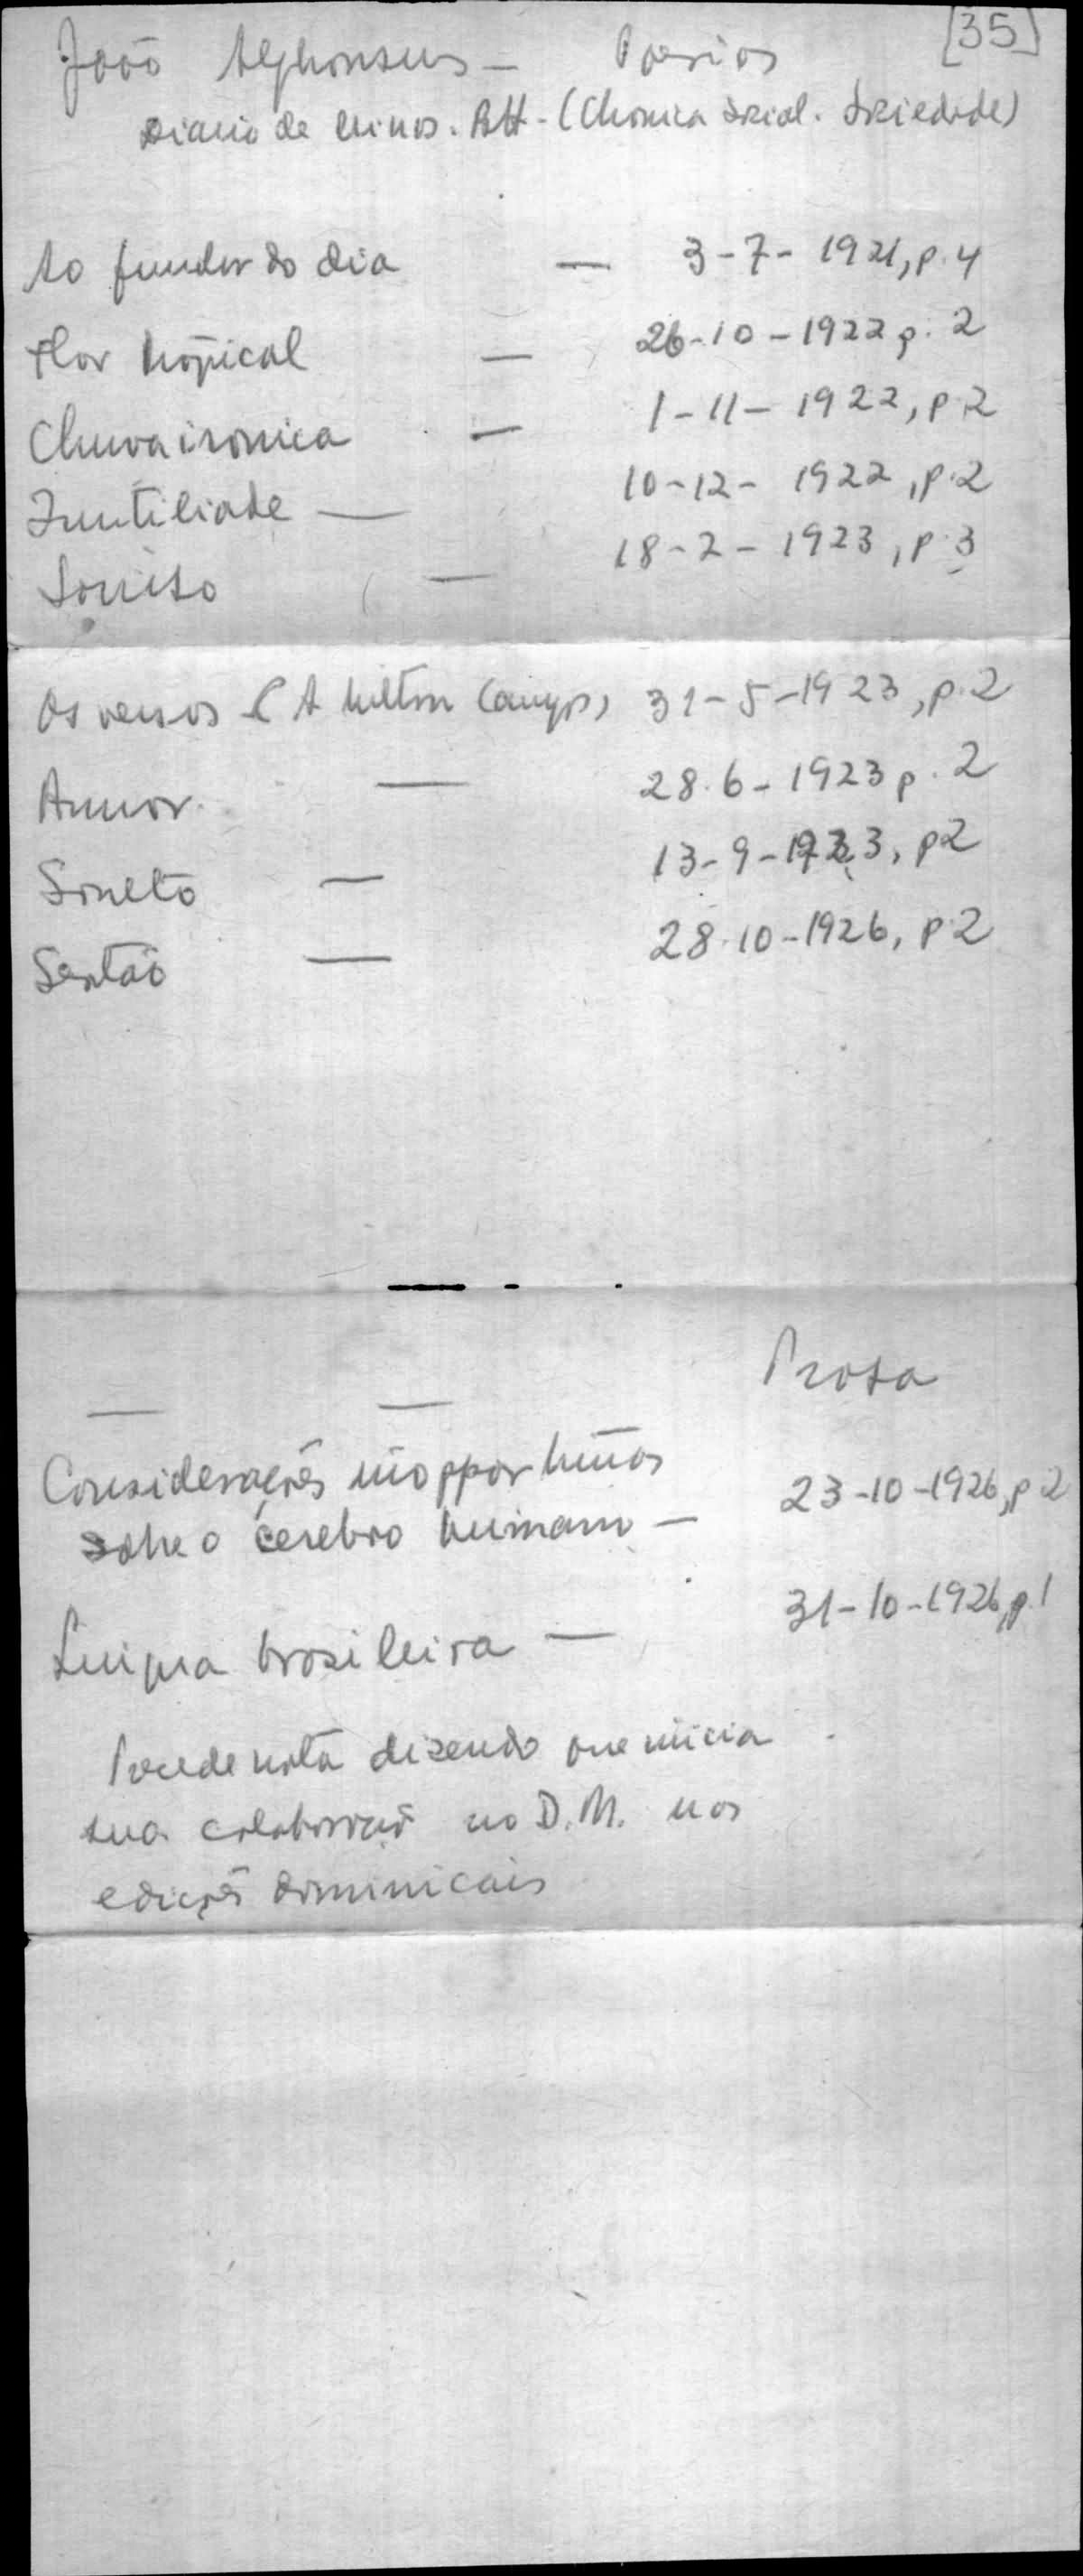 [35]
João Alphonsus - Poesias
Diario de Minas. BH - (Chronica Social. Sociedade)
Ao fundir do dia — 3-7-1921, p. 4
Flor tropical — 26-10-1922 p. 2
Chuva ironica — 1-11-1922, p. 2
Inutilidade — 10-12-1922, p. 2
Soneto — 18-2-1923, p. 3
Os versos (A Milton Campos) 31-5-1923, p. 2
Amor. — 28.6-1923 p. 2
Soneto — 13-9-1923, p 2
Sertão — 28.10-1926, p. 2
Prosa
— —
Considerações inopportunas
sobre o cerebro humano — 23-10-1926, p 2
Lingua brasileira — 31-10-1926, p. 1
Precede nota dizendo que inicia
sua colaboração no D.M. nas
edições dominicais